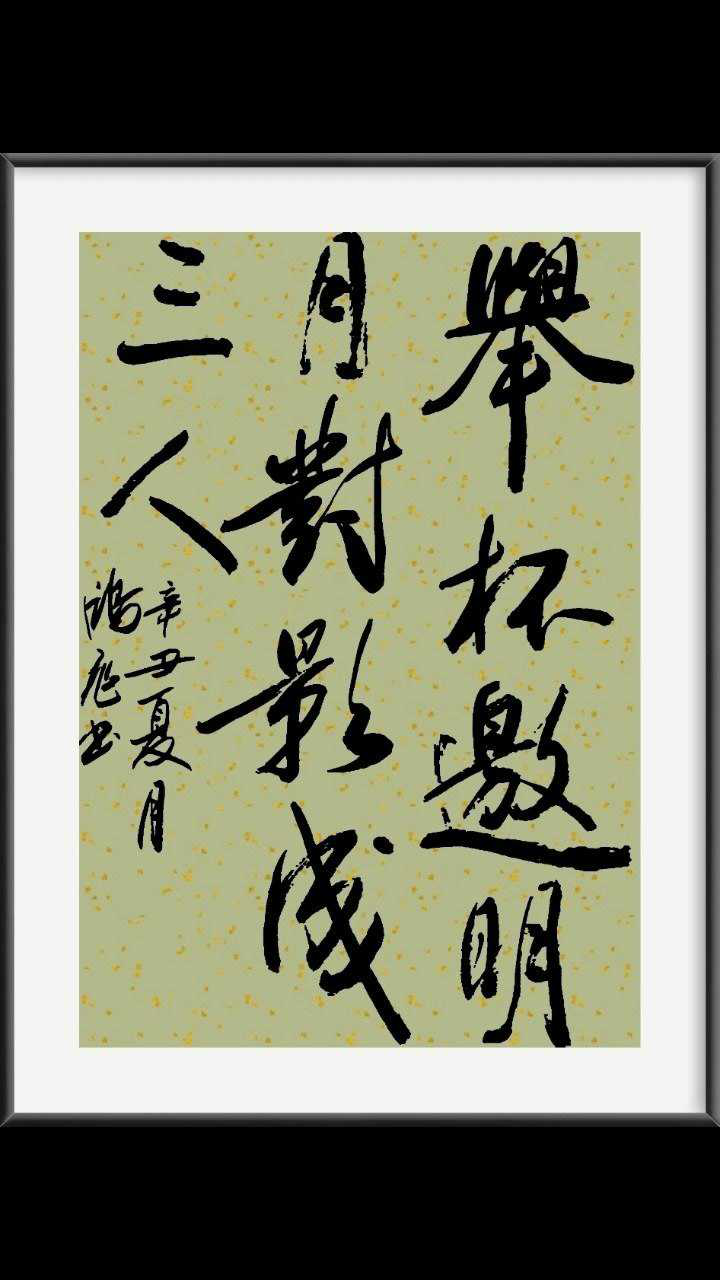 舉杯邀明
月對影成
三人
辛丑夏月
書